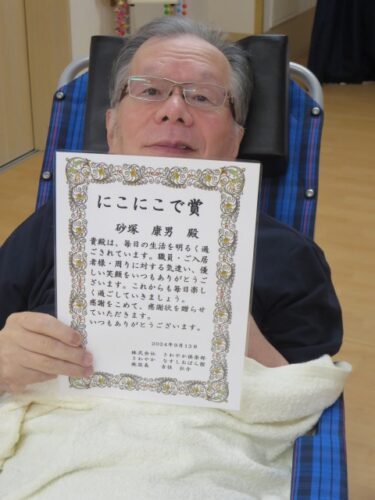 にこにこで賞
砂塚　康男　殿
貴殿は、毎日の生活を明るく過
ごされています。職員・ご入居
者様・周りに対する気遣い、優
しい笑顔をいつもありがとうご
ざいます。これからも毎日楽し
く過ごしていきましょう。
感謝をこめて、感謝状を贈らせ
ていただきます。
いつもありがとうございます。
2024年9月13日
株式会社　さわやか倶楽部
さわやか　なでしこおばん館